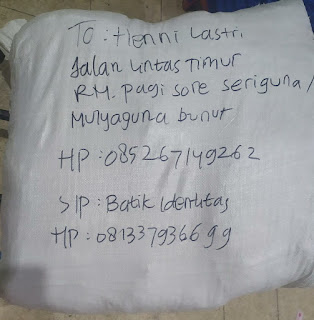 TO : Henni Lastri
Jalan Lintas Timur
RM. pagi sore seriguna /
Mulyaguna bunut
HP : 085267149262
S/P : Batik Identitas
HP : 081337936699